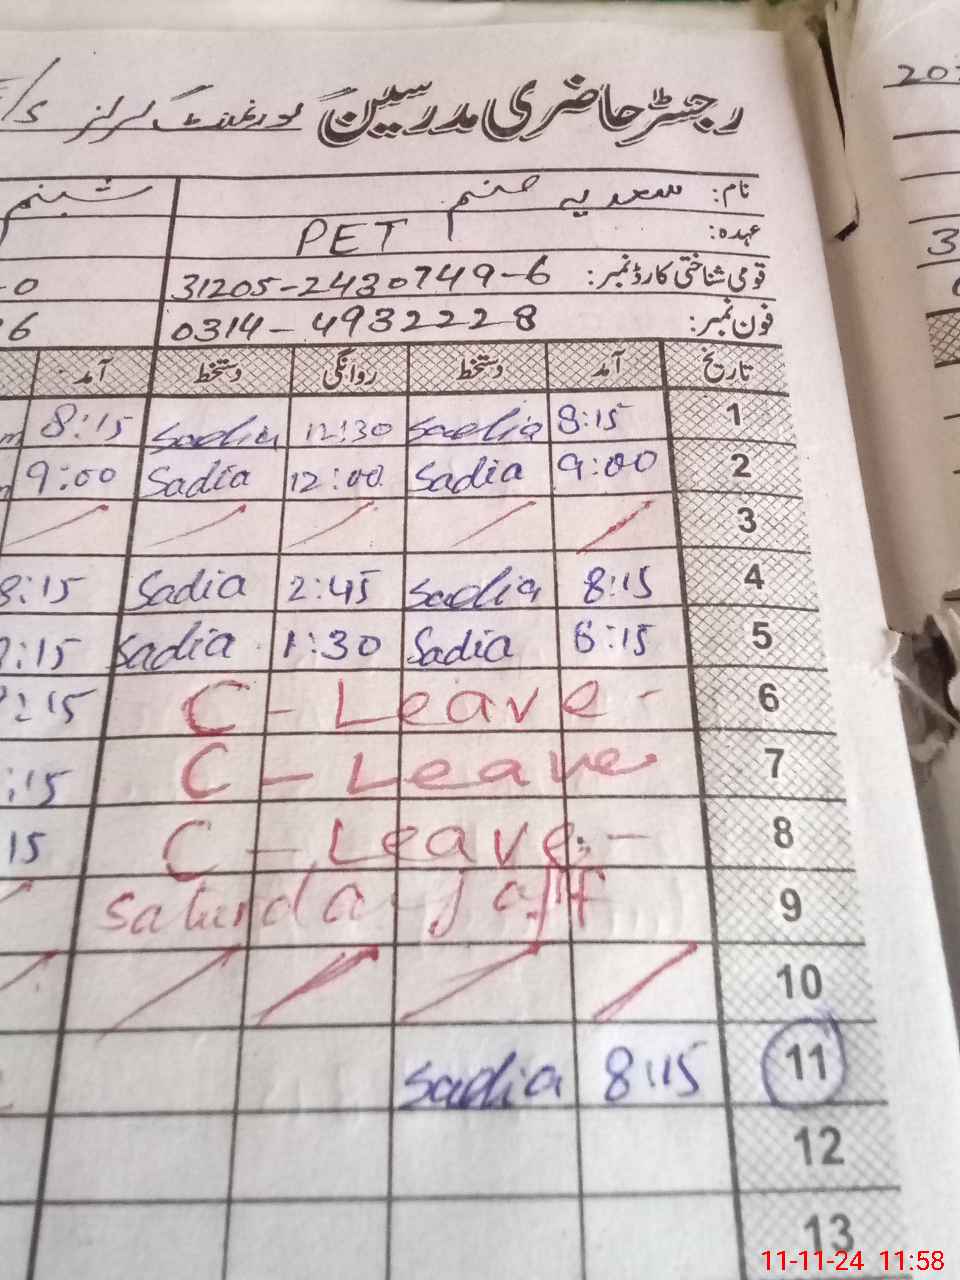 رجسٹر حاضری مدرسین گورنمنٹ گرلز
نام: سعدیہ صنم شبنم
عہدہ: PET
قومی شناختی کارڈ نمبر: 31205-2430749-6
فون نمبر: 0314-4932228
تاریخ آمد دستخط روانگی دستخط آمد
1 8:15 Sadia 12:30 Sadia 8:15
2 9:00 Sadia 12:00 Sadia 9:00
3
4 8:15 Sadia 2:45 Sadia 8:15
5 8:15 Sadia 1:30 Sadia :15
6 C - Leave - :15
7 C - Leave :15
8 C - Leave - 15
9
10
11 8:15 Sadia
12
13
11-11-24 11:58